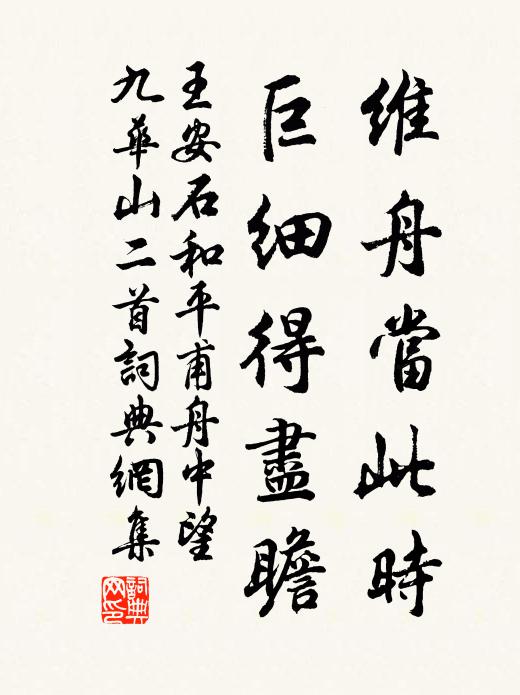 維舟當此時
巨細得盡瞻
王安石和平甫舟中望
九華山二首詞典網集
詞典
网印